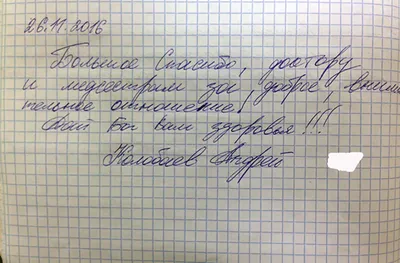 26.11.2016
Большое Спасибо, доктору
и медсестрам за доброе, внима
тельное отношение!
Дай Бог Вам здоровья!!!
Колобаев Андрей